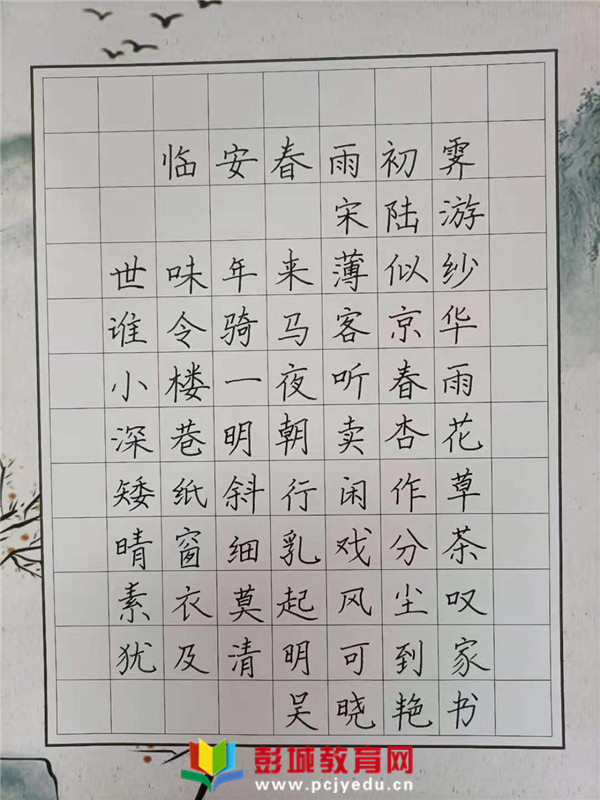 临安春雨初霁
宋陆游
世味年来薄似纱
谁令骑马客京华
小楼一夜听春雨
深巷明朝卖杏花
矮纸斜行闲作草
晴窗细乳戏分茶
素衣莫起风尘叹
犹及清明可到家
吴晓艳书
彭城教育网
www.pcjyedu.cn